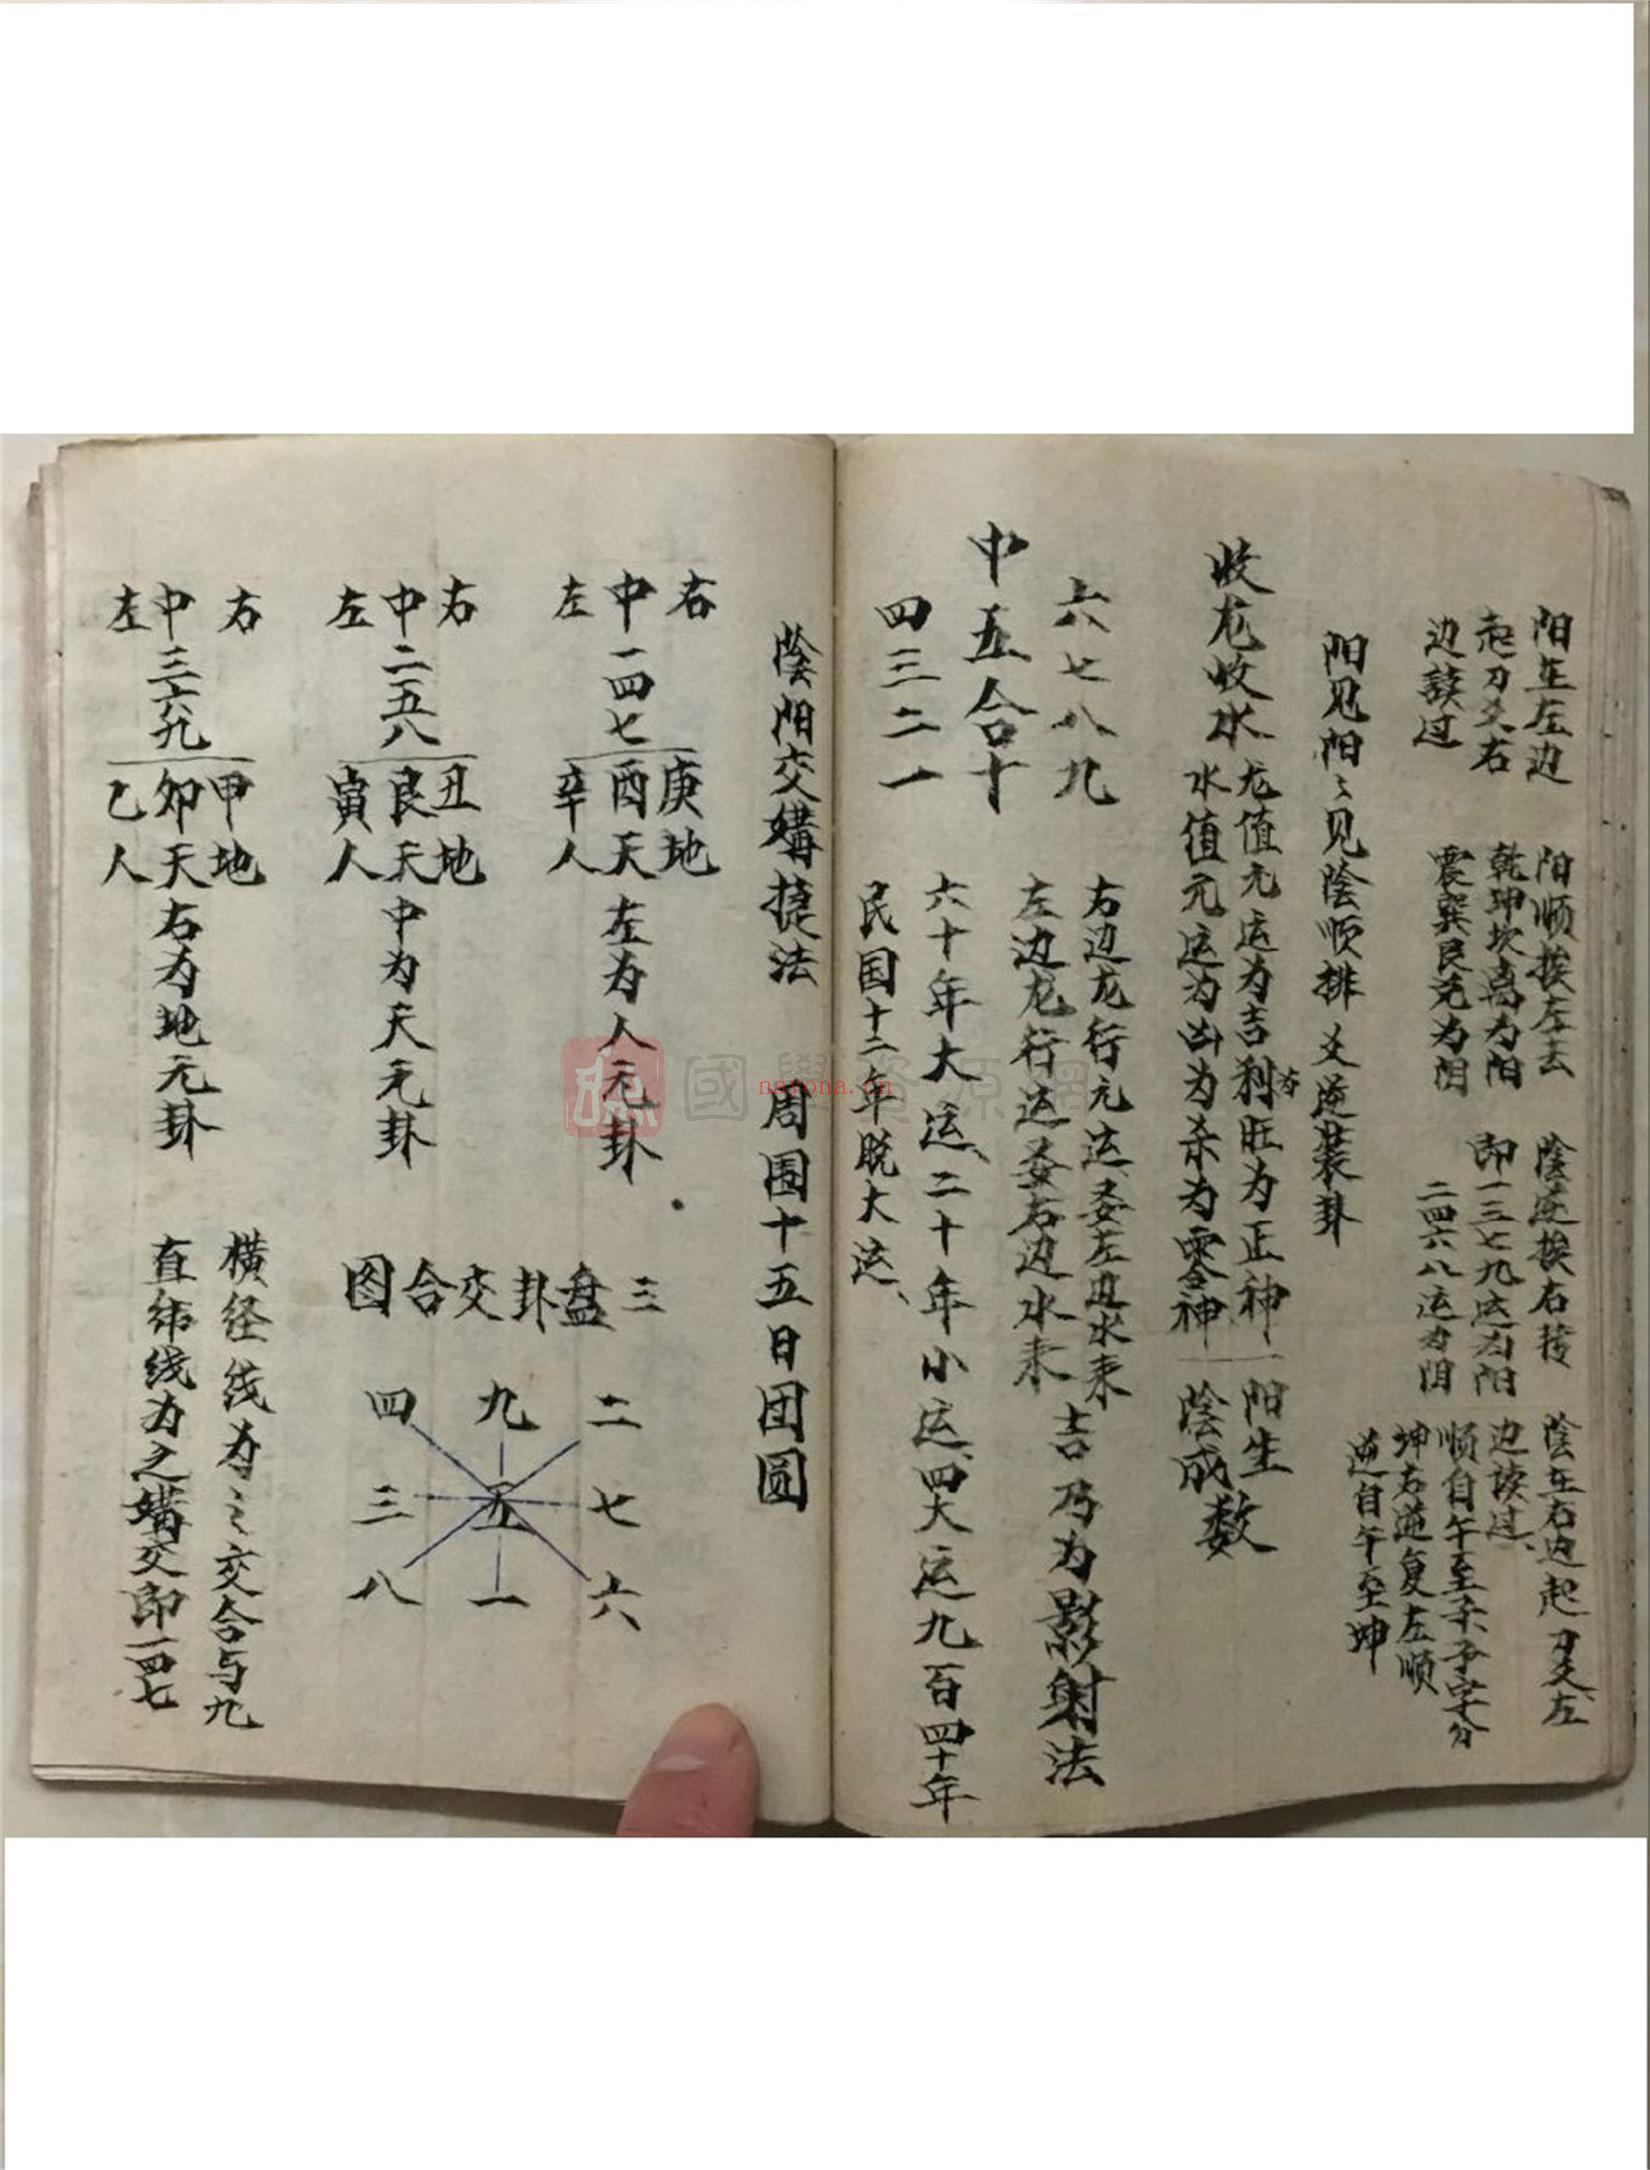 阳在左边
起刀爻右
边读过
阳顺挨左去
乾坤坎离为阳
震巽艮兑为阴
陰逆挨右转
即一三七九运为阳
二四六八运为阴
陰在右边起刀爻左
边读过、
顺自午至壬子字分
坤右逆复左顺
逆自午至坤
阳见阳〻见陰顺排爻逆装卦
收龙收水
龙值元运为吉利旺为正神
水值元运为凶为杀为零神
一阳生
陰成数
六七八九
中五合十
四三二一
右边龙行元运、要左边水来
左边龙行运要右边水来
吉乃为影射法
六十年大运、二十年小运、四大运九百四十年
民国十二年脱大运、
陰阳交媾捷法 周围十五日团圆
右 庚地
中一四七酉天左为人元卦
左 辛人
右 丑地
中二五八艮天中为天元卦
左 寅人
右 甲地
中三六九卯天右为地元卦
左 乙人
三盘卦交合图
四 九 二
三 五 七
八 一 六
横经线为之交合与九
直纬线为之媾交即一四七
國學資源網
nayona.cn